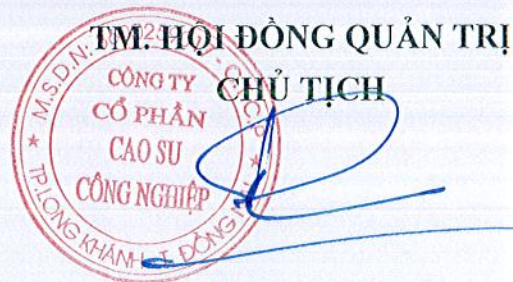 TM. HỘI ĐỒNG QUẢN TRỊ
CHỦ TỊCH
CÔNG TY
CỔ PHẦN
CAO SU
CÔNG NGHIỆP
M.S.D.N:
TP.LONG KHÁNH - T. ĐỒNG